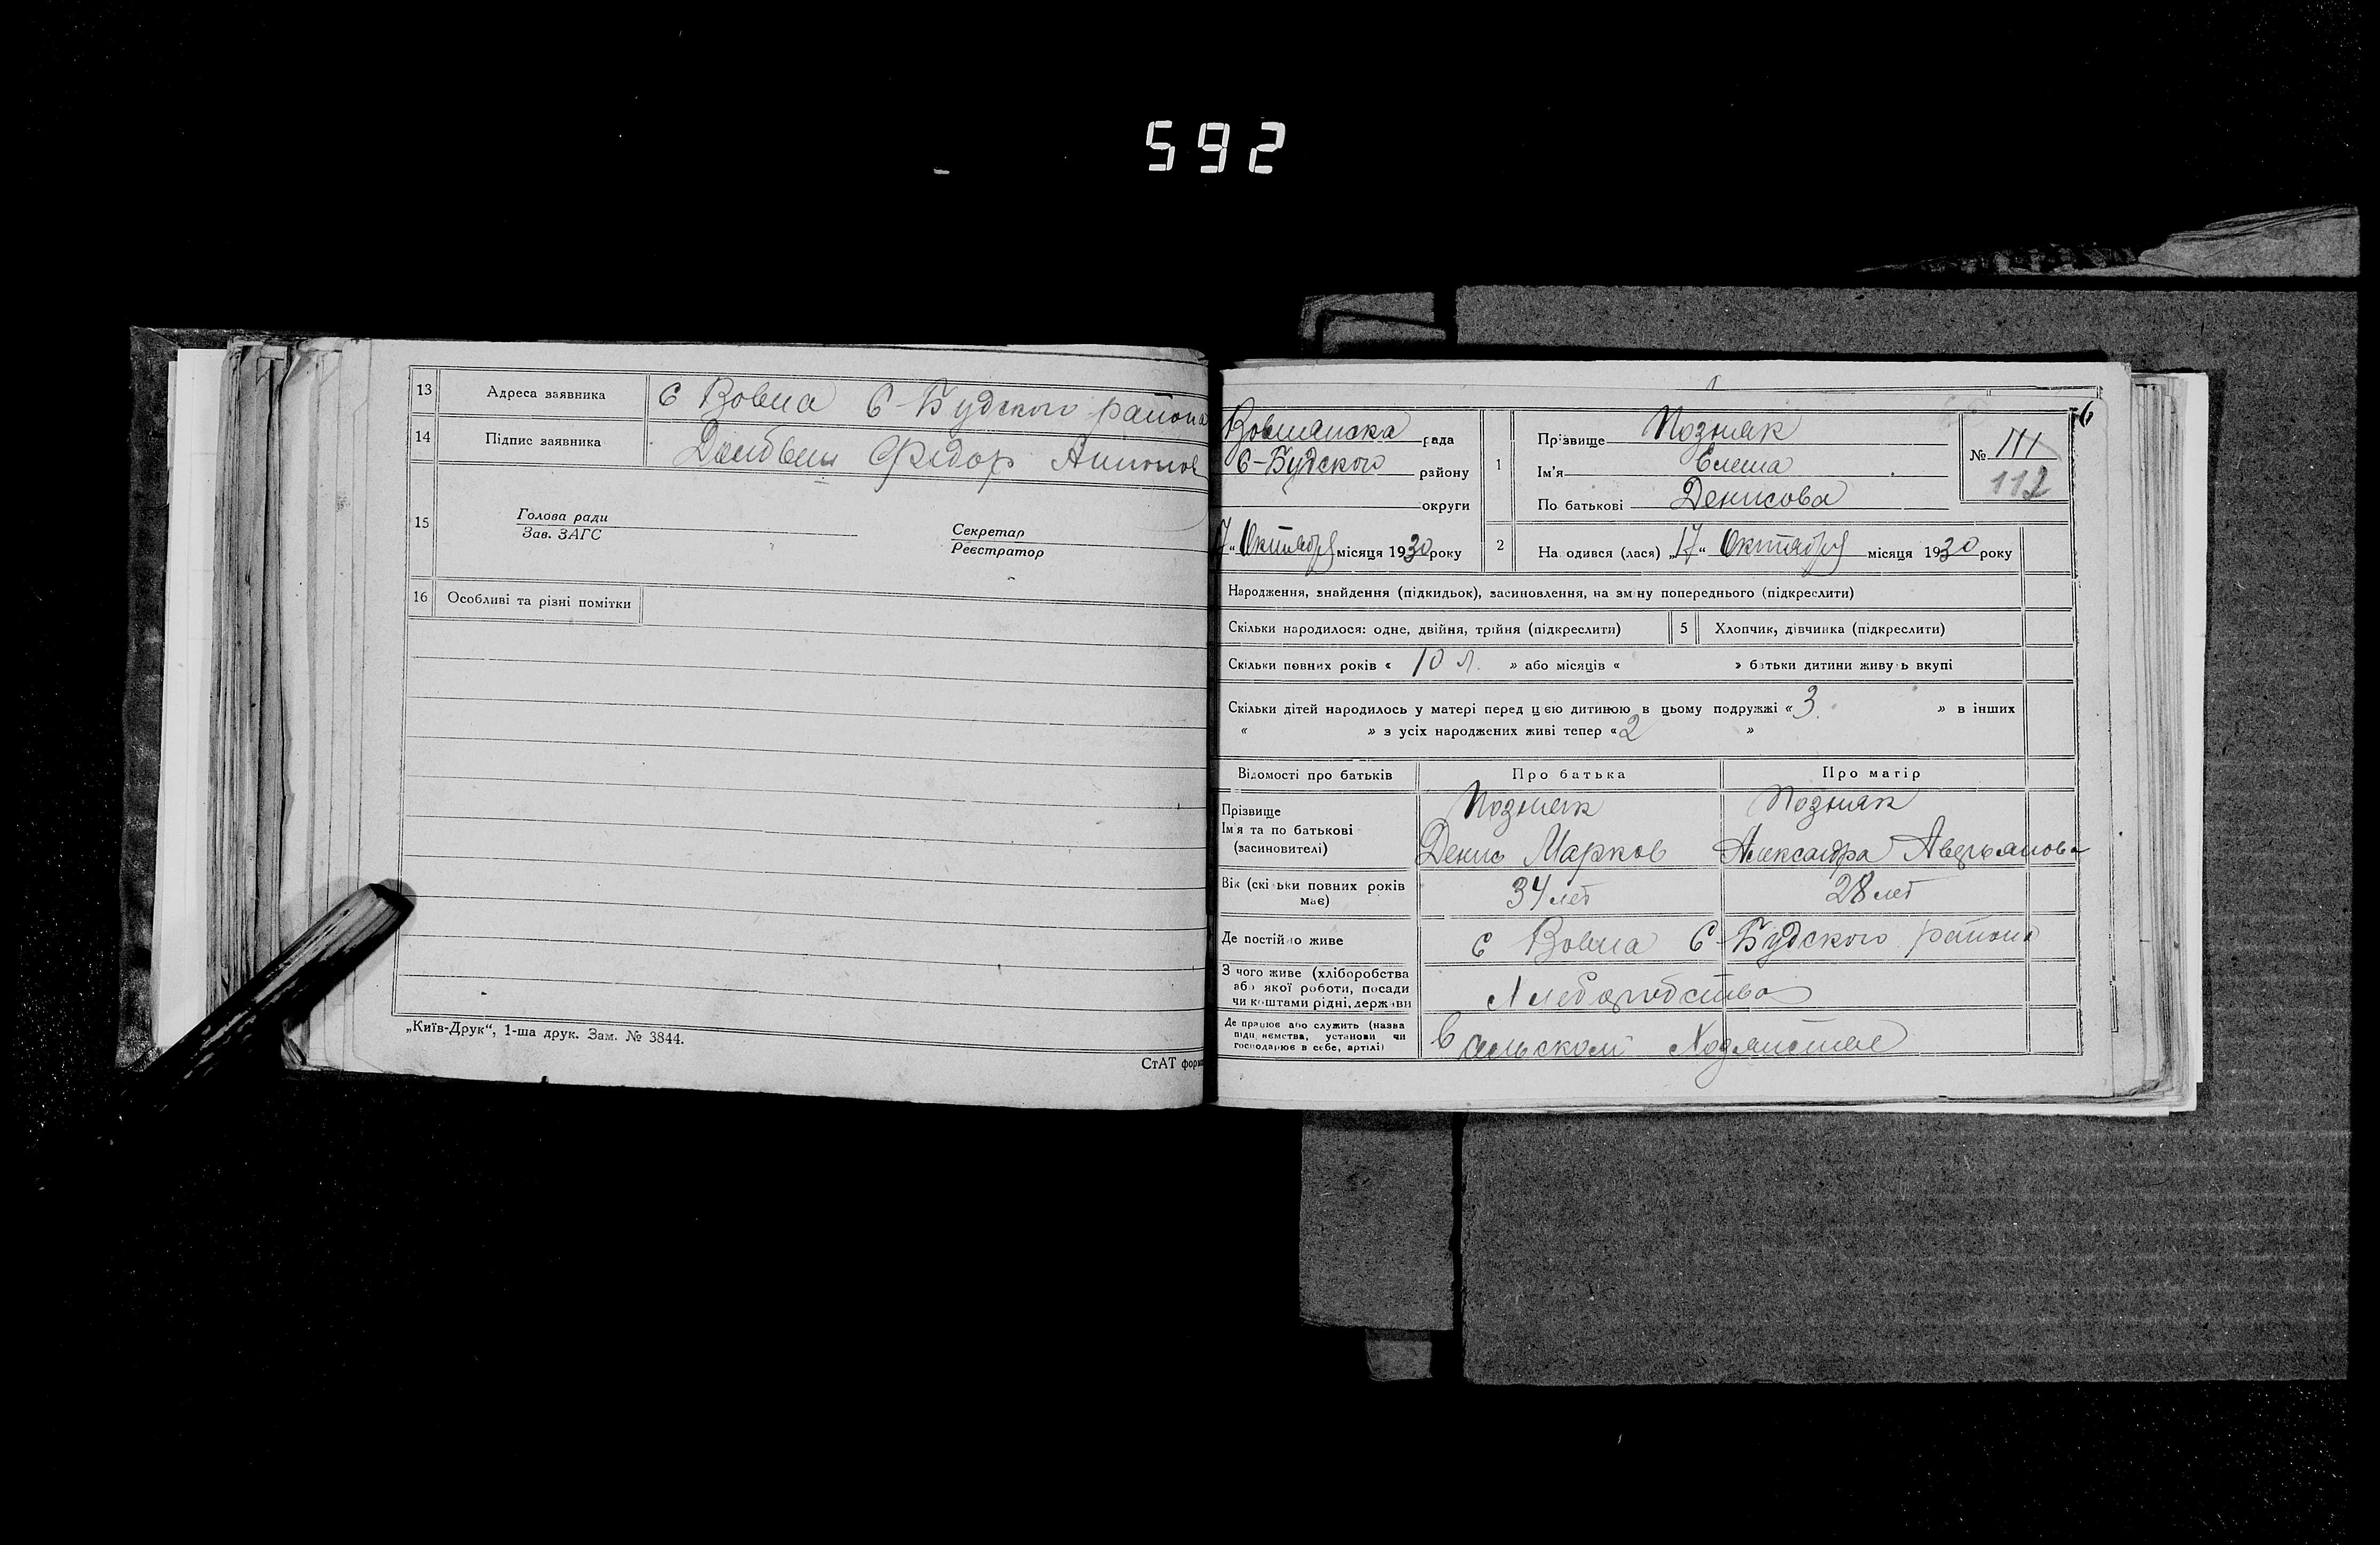 592
13 Адреса заявника с Вовна С-Будского района
14 Підпис заявника Федор
15 Голова ради
Зав. ЗАГС
Секретар
Реєстратор
16 Особливі та різні помітки
„Київ-Друк“, 1-ша друк. Зам. № 3844.
СтАТ форма
6
Вовнянска рада
С-Будского району
округи
7 “ Октября місяця 1930 року
1 Прізвище Позняк
Ім'я Елена
По батькові Денисова
№ 111
112
2 На одився (лася) „17“ Октября місяця 1930 року
Народження, знайдення (підкидьок), засиновлення, на зміну попереднього (підкреслити)
Скільки народилося: одне, двійня, трійня (підкреслити) 5 Хлопчик, дівчинка (підкреслити)
Скільки повних років « 10 л. » або місяців « » батьки дитини живуть вкупі
Скільки дітей народилось у матері перед цією дитиною в цьому подружжі « 3 » в інших
« » з усіх народжених живі тепер « 2 »
Відомості про батьків Про батька Про матір
Прізвище Позняк Позняк
Ім'я та по батькові Денис Марков Александра Аверьянова
(засиновителі)
Вік (скільки повних років має) 34 лет 28 лет
Де постійно живе с Вовна С-Будского района
З чого живе (хліборобства
або якої роботи, посади
чи коштами рідні, держави
Де працює або служить (назва
підприємства, установи чи
господарює в себе, артілі)
в сельском